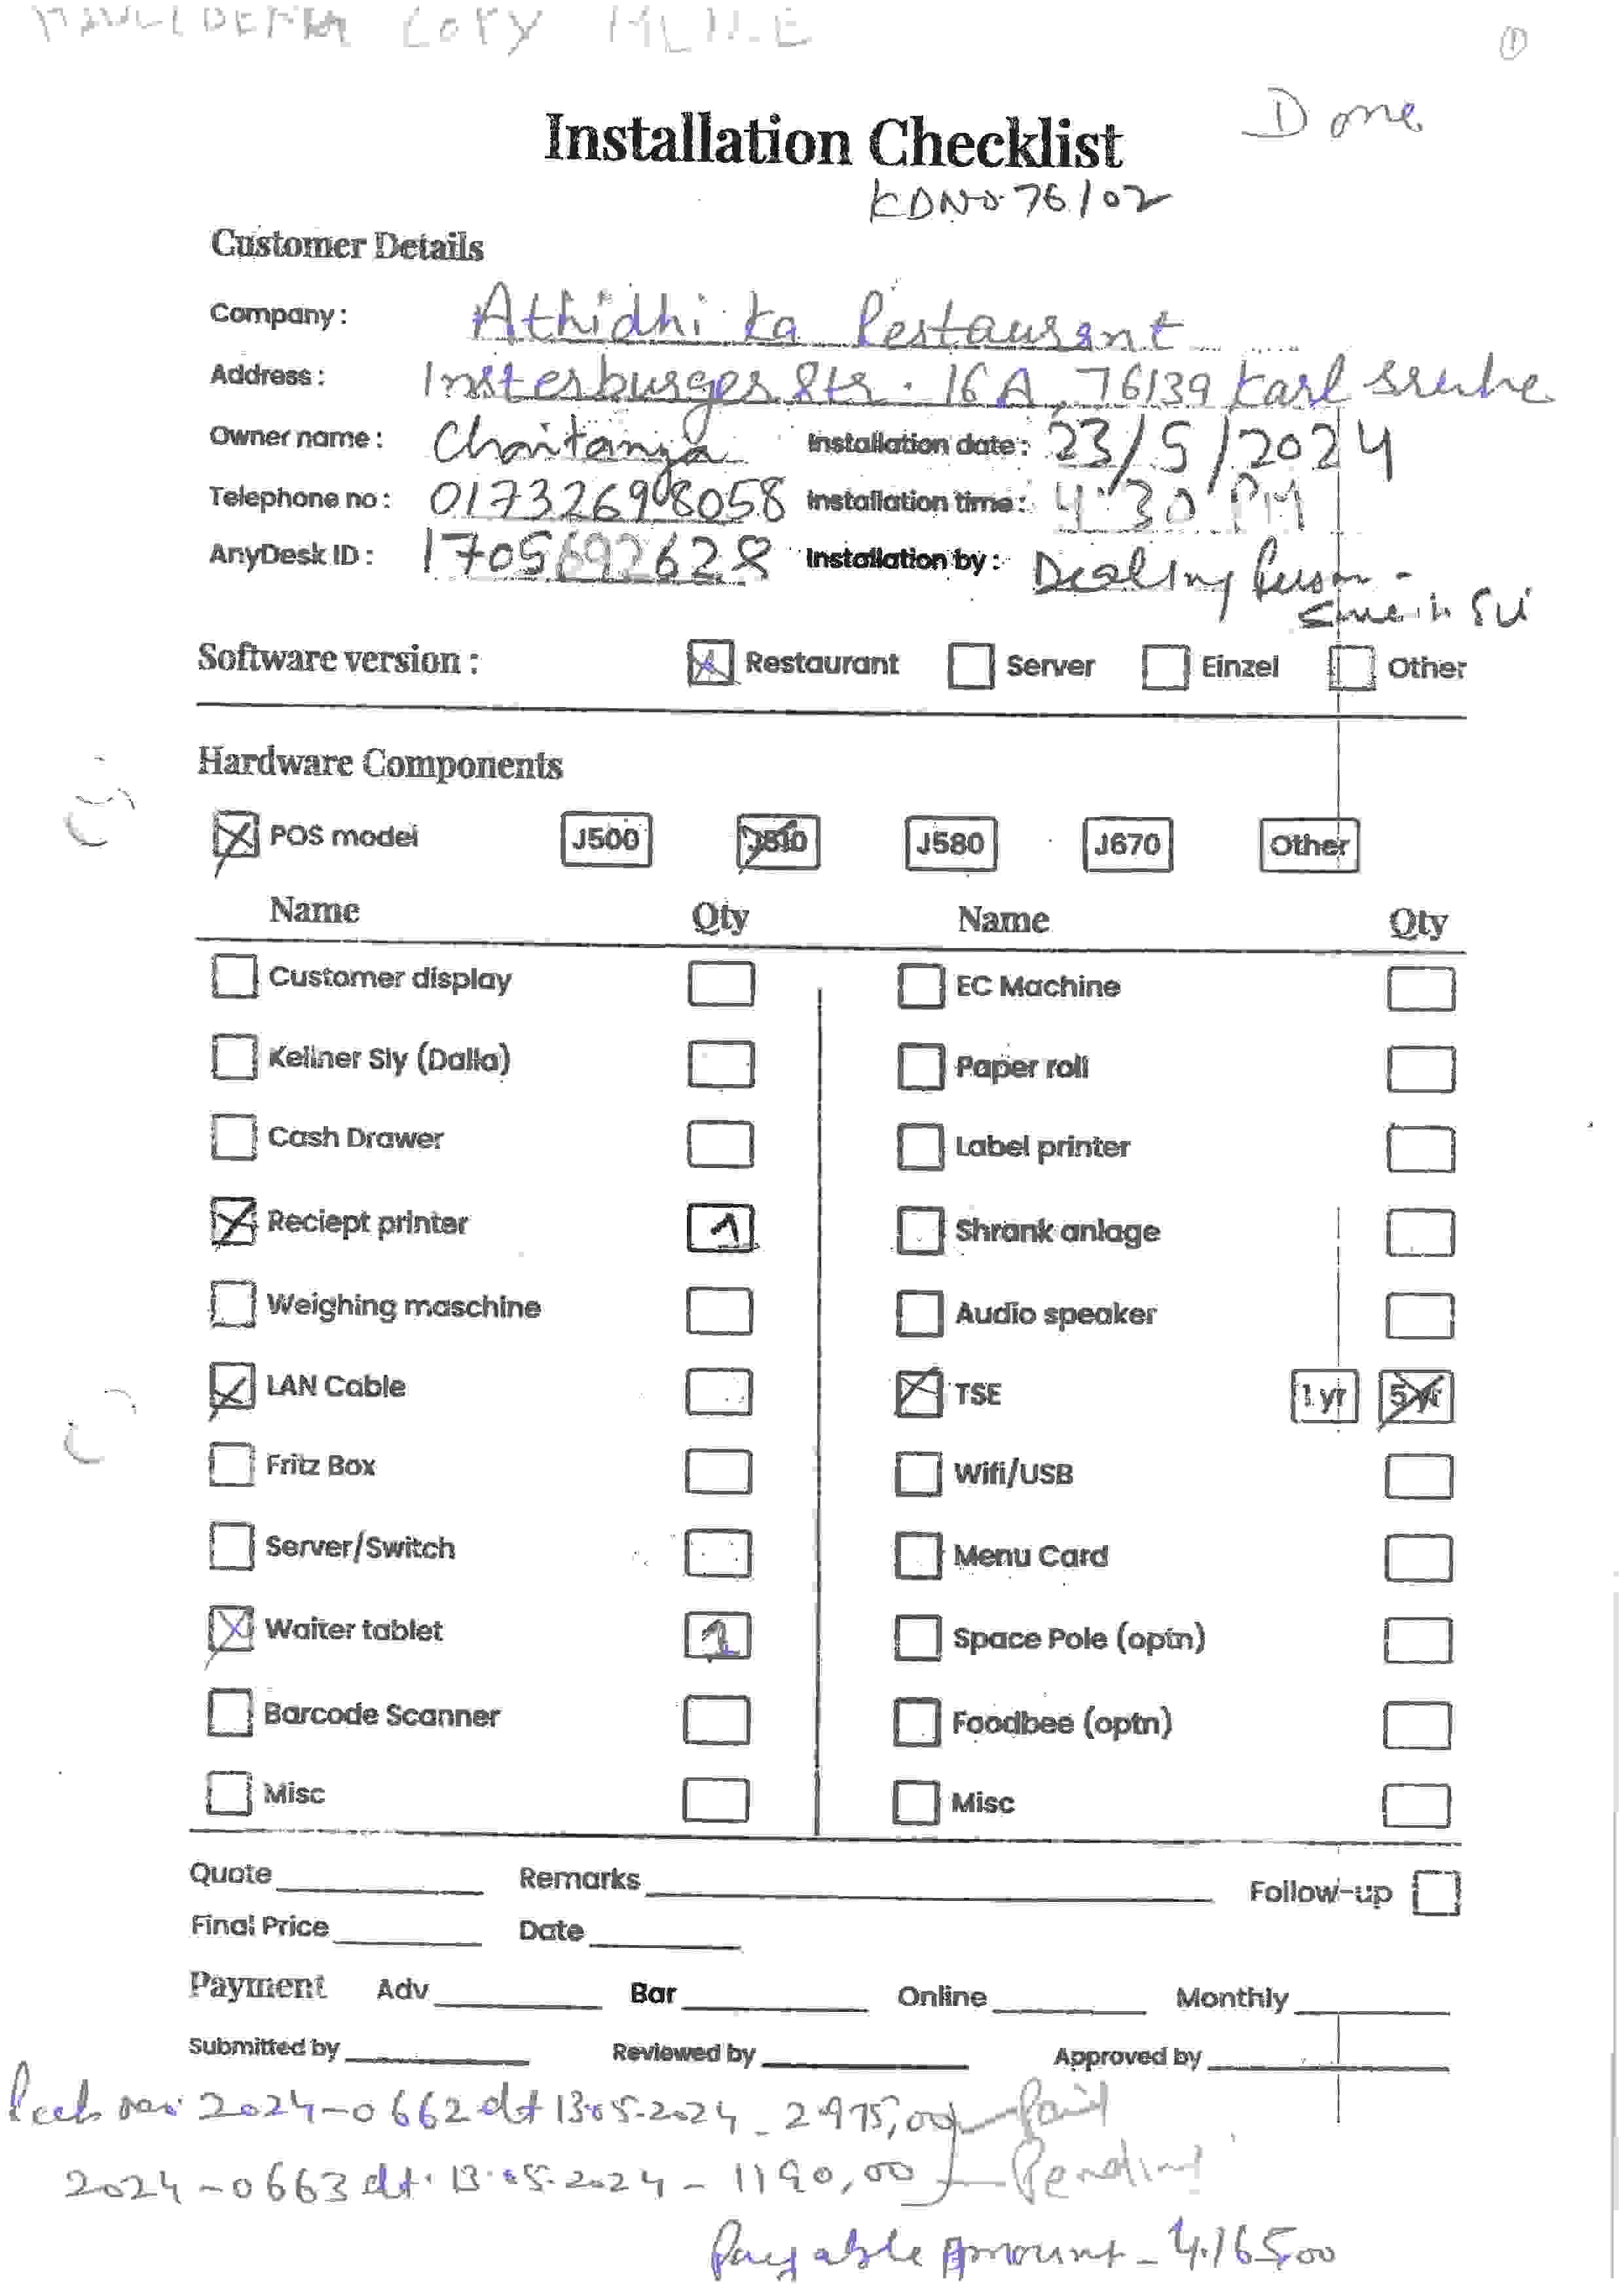 COPY
①
Done
Installation Checklist
KDNo 76/02
Customer Details
Company: Athidhi ka Restaurant
Address: Insterburger Str. 16 A, 76139 Karlsruhe
Owner name: Chaitanya Installation date: 23/5/2024
Telephone no: 017326908058 Installation time: 4:30 PM
AnyDesk ID: 1705692628 Installation by: Dealing Person -
Software version: Restaurant Server Einzel Other
Hardware Components
POS model J500 J510 J580 J670 Other
Name Qty Name Qty
Customer display EC Machine
Kellner Sly (Dalla) Paper roll
Cash Drawer Label printer
Reciept printer 1 Shrank anlage
Weighing maschine Audio speaker
LAN Cable TSE 1 yr 5 yr
Fritz Box Wifi/USB
Server/Switch Menu Card
Waiter tablet 1 Space Pole (optn)
Barcode Scanner Foodbee (optn)
Misc Misc
Quote Remarks Follow-up
Final Price Date
Payment Adv Bar Online Monthly
Submitted by Reviewed by Approved by
2024-0662 dt 13.05.2024 - 2975,00 Paid
2024-0663 dt. 13.05.2024 - 1190,00 Pending
Payable Amount - 4.165,00